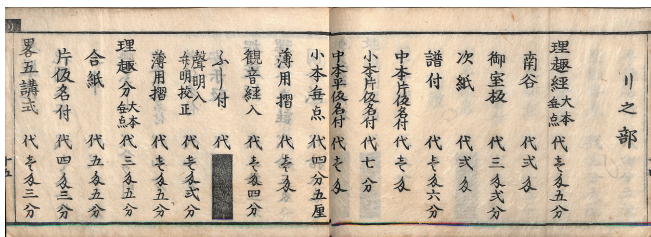 リ之部
理趣経 大本無点 代壱匁五分
南谷 代弐匁
御室板 代三匁弐分
次紙 代弐匁
譜付 代壱匁六分
中本片仮名付 代壱匁
小本片仮名付 代七分
中本平仮名付 代壱匁
小本無点 代四分五厘
薄用摺 代壱匁
観音経入 代壱匁四分
ふ付 代
聲明入 明校正 代壱匁弐分
薄用摺 代壱匁五分
理趣分 大本無点 代三匁五分
合紙 代五匁五分
片仮名付 代四匁三分
畧五講式 代壱匁三分
十五